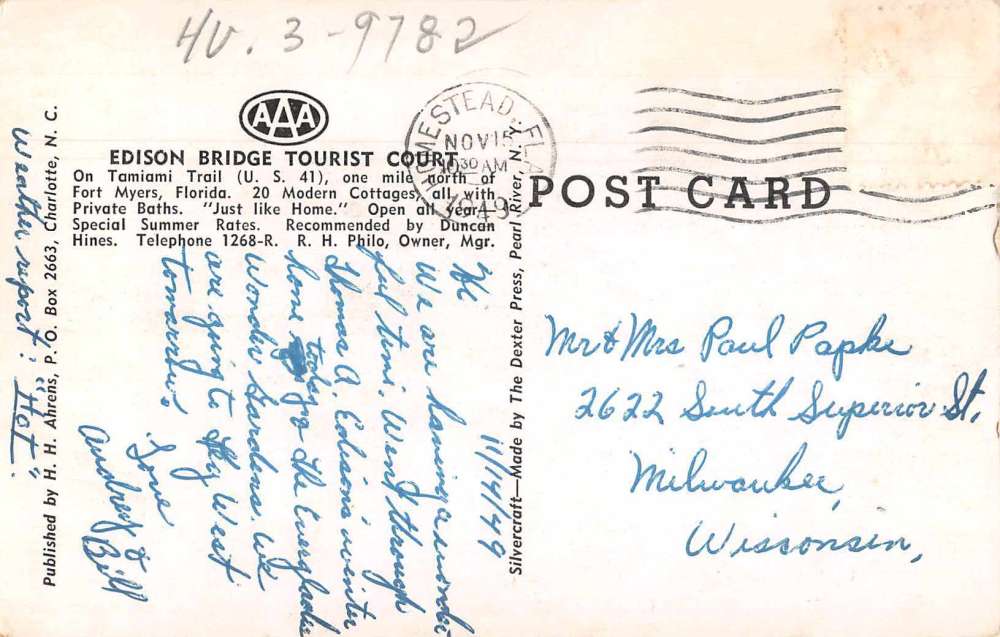 HV. 3-9782
AAA
EDISON BRIDGE TOURIST COURT
On Tamiami Trail (U. S. 41), one mile north of
Fort Myers, Florida. 20 Modern Cottages, all with
Private Baths. "Just like Home." Open all year.
Special Summer Rates. Recommended by Duncan
Hines. Telephone 1268-R. R. H. Philo, Owner, Mgr.
HOMESTEAD, FLA.
NOV 15
10 30 AM
1949
POST CARD
Published by H. H. Ahrens, P. O. Box 2663, Charlotte, N. C.
Silvercraft—Made by The Dexter Press, Pearl River, N. Y.
11/14/49
Hi
We are having a wonder
ful time. Went through
Thomas A. Edison's winter
home today & the Everglades
Wonder Gardens. We
are going to Key West
tomorrow.
Love
Audrey &
Bill
Weather report: "Hot".
Mr & Mrs Paul Papke
2622 South Superior St,
Milwaukee,
Wisconsin,